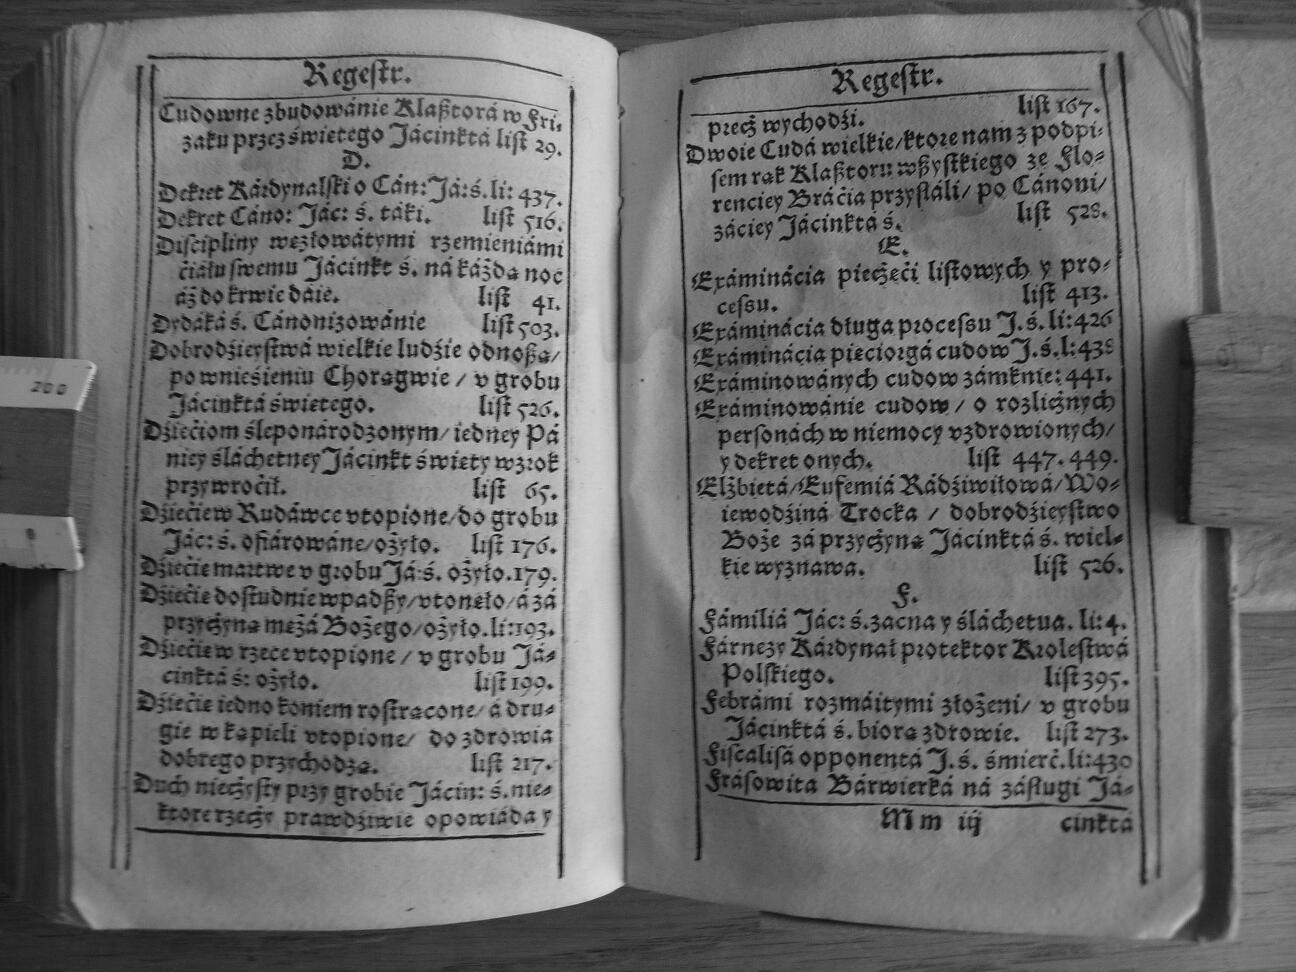 Regestr.
Cudowne zbudowánie Klasztorá w Fri,
zaku przez świetego Jácinktá list 29.
D.
Dekret Kárdynalski o Cán: Já: ś. li: 437.
Dekret Cáno: Jác: ś. táki. list 516.
Discipliny węzłowátymi rzemieniámi
ćiáłu swemu Jácinkt ś. ná káżdą noc
áż do krwie dáie. list 41.
Dydáká ś. Cánonizowánie list 503.
Dobrodźieystwá wielkie ludźie odnoszą/
po wnieśieniu Chorągwie / v grobu
Jácinktá świetego. list 526.
Dźiećiom ślepo národzonym/ iedney Pá
niey śláchetney Jácinkt święty wzrok
przywroćił. list 65.
Dźiećie w Rudáwce vtopione/ do grobu
Jác: ś. ofiárowáne/ ożyło. list 176.
Dźiećie martwe v grobu Já: ś. ożyło. 179.
Dźiećie do studnie wpadszy/ vtonęło/ á zá
przyczyną mężá Bożego/ ożyło. li: 193.
Dźiećie w rzece vtopione / v grobu Já-
cinktá ś: ożyło. list 199.
Dźiećie iedno koniem rostrącone/ á dru-
gie w kąpieli vtopione/ do zdrowia
dobrego przychodzą. list 217.
Duch nieczysty przy grobie Jácin: ś. nie-
ktore rzeczy prawdźiwie opowiáda y
Regestr.
precz wychodźi. list 167.
Dwoie Cudá wielkie/ ktore nam z podpi-
sem rąk Klasztoru wszystkiego ze Flo-
renciey Bráćia przysłáli/ po Cánoni/
záciey Jácinktá ś. list 528.
E.
Exáminácia pieczęći listowych y pro-
cessu. list 413.
Exáminácia długa processu J. ś. li: 426
Exáminácia piećiorgá cudow J. ś. l: 438
Exáminowánych cudow zámknie: 441.
Exáminowánie cudow/ o rozlicznych
personách w niemocy vzdrowionych/
y dekret onych. list 447. 449.
Elżbietá/ Eufemiá Rádźiwiłowá/ Wo-
iewodźiná Trocka / dobrodźieystwo
Boże zá przyczyną Jácinktá ś. wiel-
kie wyznawa. list 526.
F.
Fámiliá Jác: ś. zacna y śláchetua. li: 4.
Fárnezy Kárdynał protektor Krolestwá
Polskiego. list 395.
Febrámi rozmáitymi złożeni/ v grobu
Jácinktá ś. biorą zdrowie. list 273.
Fiscalisá opponentá J. ś. śmierć. li: 430
Frásowita Bárwierká ná zásługi Já-
M m iij cinktá